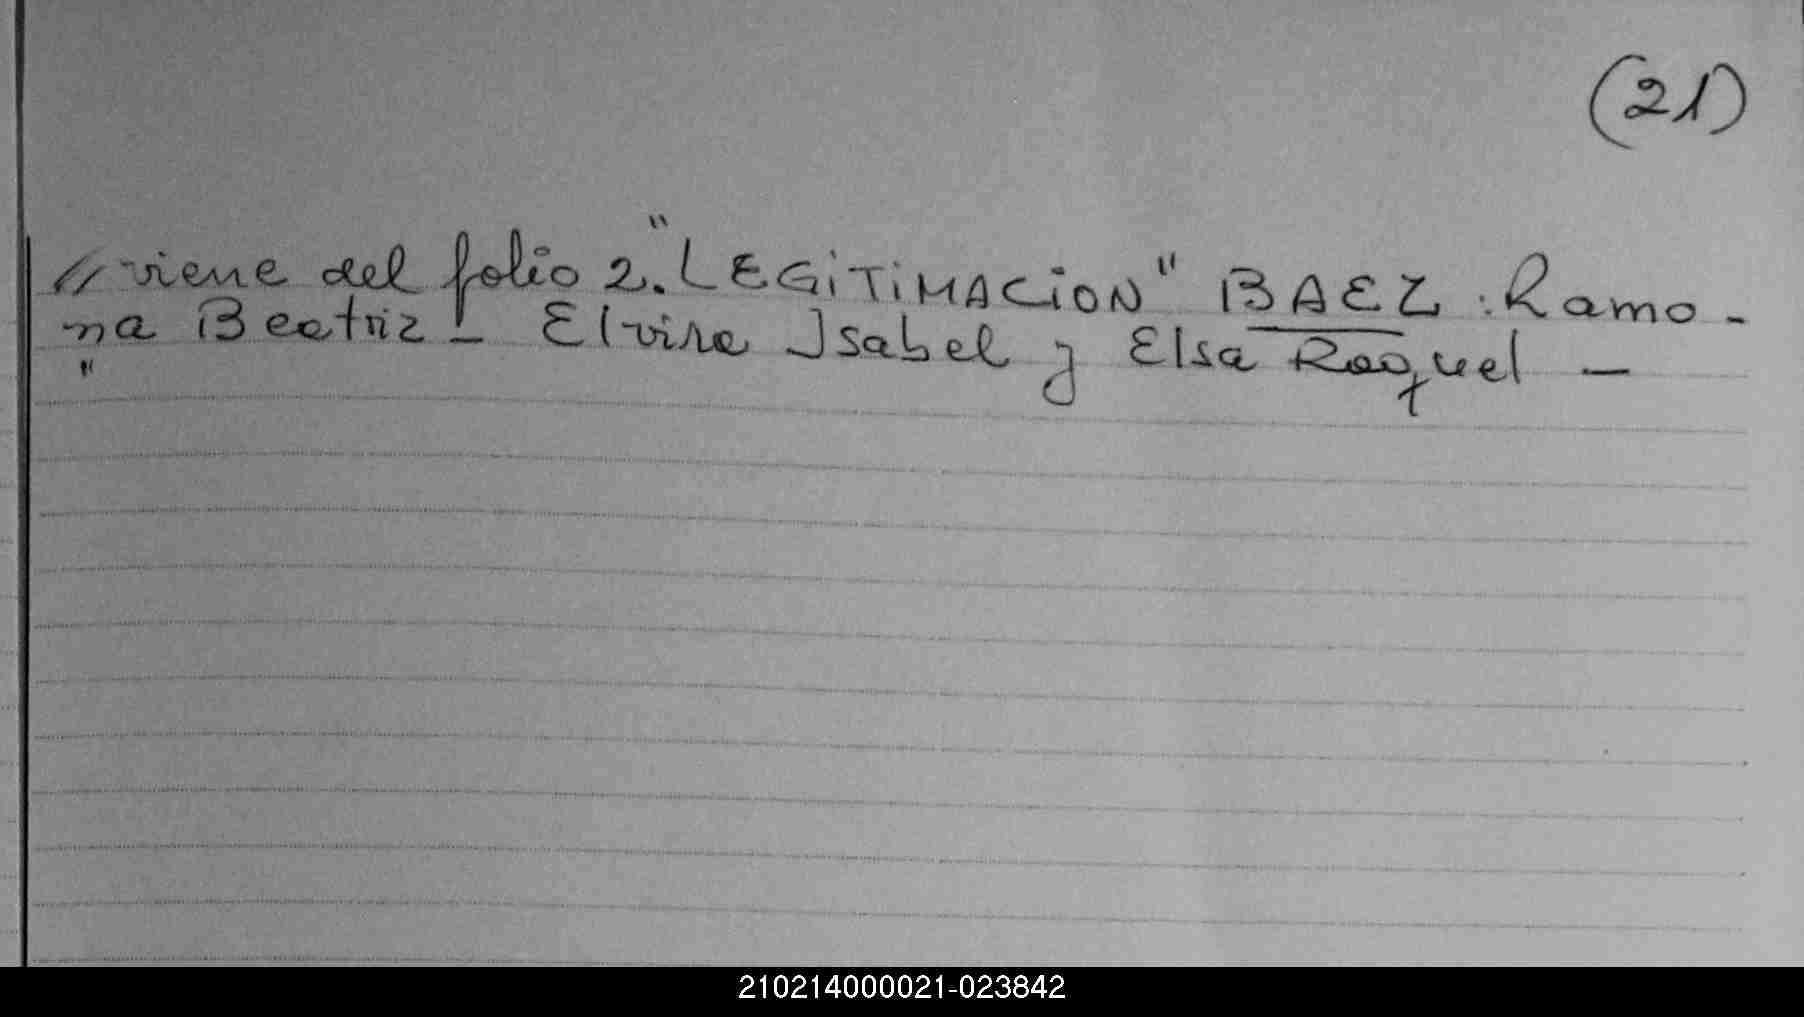 (21)
// viene del folio 2. "LEGiTiMACiON" BAEZ : Ramo-
na Beatriz - Elvira Isabel y Elsa Raquel -
"
210214000021-023842